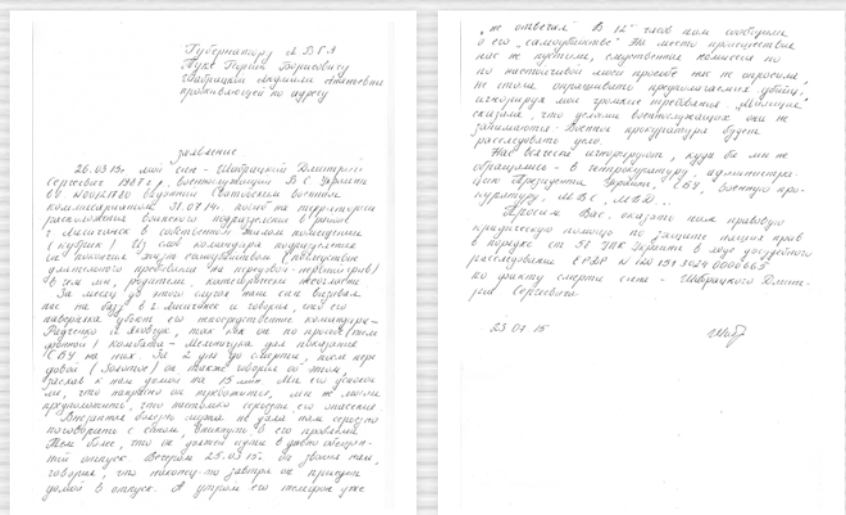 "Губернатору ЛВГА
Туке Георгию Борисовичу
Шабрацкой Людмилы Анатольевны
проживающей по адресу
заявление
26.03.15г мой сын - Шабрацкий Дмитрий
Сергеевич 1987 г.р., военнослужащий ВС Украины
выданный Сватовским военным
комиссариатом 31.07.14г. погиб на территории
расположения воинского подразделения в районе
г. Лисичанск в собственном жилом помещении
(кубрик) Из слов командира подразделения
он покончил жизнь самоубийством (вследствие
длительного пребывания на передовой - нервный срыв)
в чем мы, родители, категорически не согласны
За месяц до этого случая наш сын вызвал
нас на базу в г. Лисичанск и говорил, что его
наверняка убьют его непосредственные командиры -
Радченко и Яковчук, так как он по просьбе
комбата - Мельничука дал показания
СБУ на них. За 2 дня до смерти, после пере
довой (Золотое) он также говорил об этом,
заехав к нам домой на 15 мин. Мы его успокои
ли, что напрасно он тревожится, мы не могли
предположить, что настолько серьезны его опасения.
Внезапная болезнь мужа не дала нам серьезно
поговорить с сыном, вникнуть в его проблемы
Тем более, что он должен идти в давно обещан-
ный отпуск. Вечером 25.03.15г. он звонил нам,
говорил, что наконец-то завтра он приедет
домой в отпуск. А утром его телефон уже
"не отвечал" В 12 часов нам сообщили
о его "самоубийстве" На место происшествия
нас не пустили, следственная комиссия по
по настойчивой моей просьбе нас не опросила,
не стала опрашивать предполагаемых убийц,
игнорируя мои громкие требования. "Милиция"
сказала, что делами военнослужащих они не
занимаются. Военная прокуратура будет
расследовать дело.
Нас всячески игнорируют, куда бы мы не
обращались - в генпрокуратуру, администра-
цию Президента Украины, СБУ, военную про-
куратуру, МВС, МВД...
Просим Вас, оказать нам правовую
юридическую помощь по защите наших прав
в порядке ст 56 УПК Украины в ходе досудебного
расследования ЕРДР
по факту смерти сына - Шабрацкого Дмит-
рия Сергеевича
23 07. 15